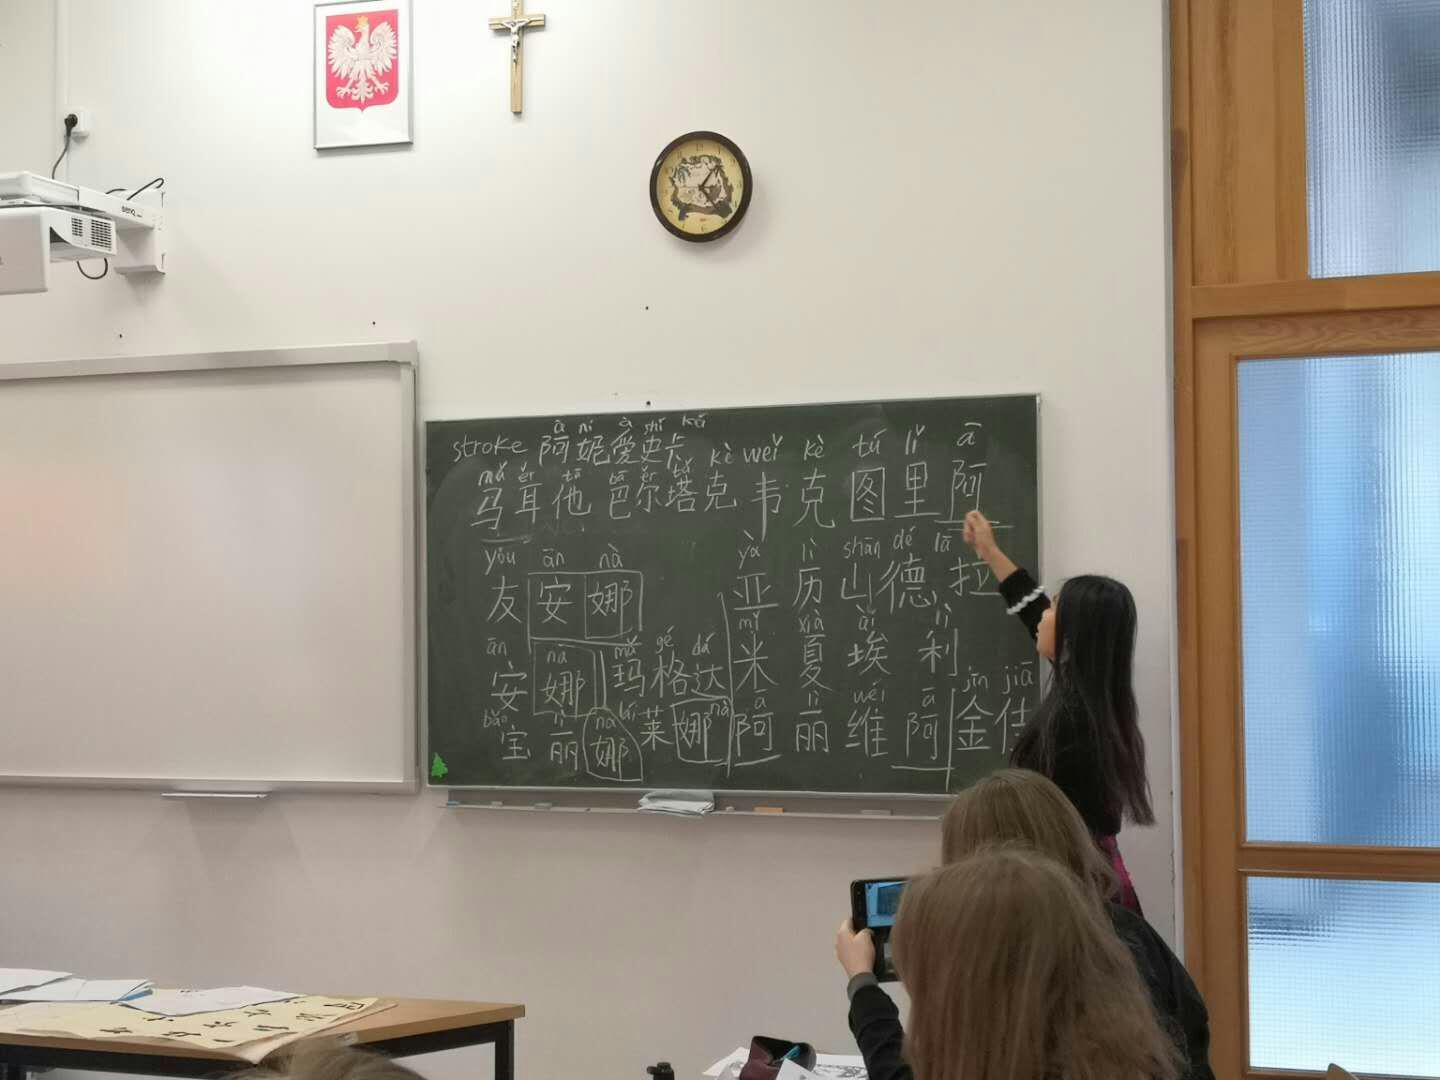 benq
ā ní ài shǐ kǎ
stroke 阿妮爱史卡
mǎ ěr tā bā ěr tǎ kè wěi kè tú lǐ ā
马耳他 巴尔塔克 韦克图里阿
yǒu ān nà yà lì shān dé lā
友安娜 亚历山德拉
ān na mǎ gé dá mǐ xià āi lì
安娜 玛格达 米夏埃利
bǎo lì na lái nà ā lì wéi ā jīn jiā
宝丽娜 莱娜 阿丽维阿 金佳